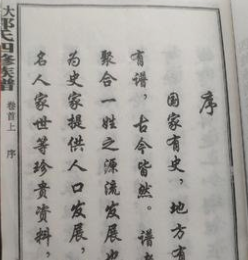 序
国家有史，地方有
有谱，古今皆然。谱者
聚合一姓之源流发展也
为史家提供人口发展，
名人家世等珍贵资料，
大郭氏四修族谱
卷首上
序